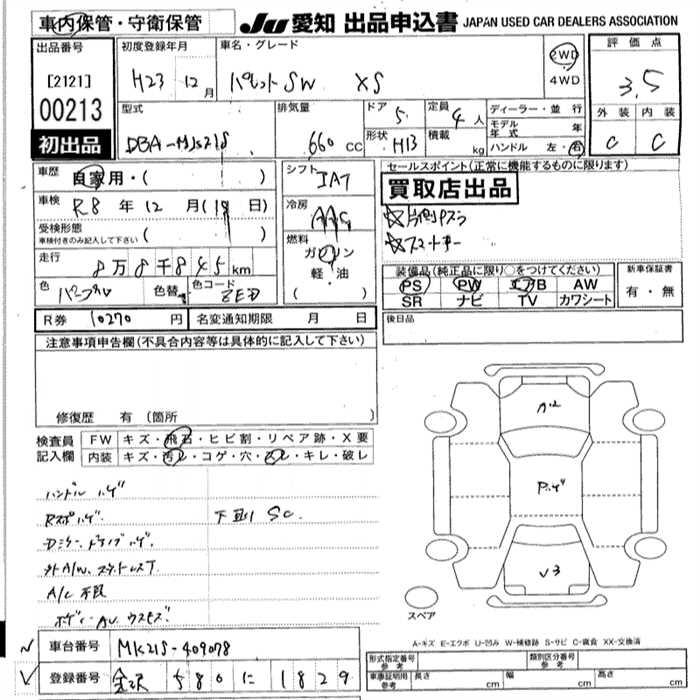 車内保管・守衛保管
JU 愛知 出品申込書 JAPAN USED CAR DEALERS ASSOCIATION
出品番号
[2121]
00213
初出品
初度登録年月
H23 12月
車名・グレード
パレットSW XS
2WD
4WD
評価点
3.5
外装 内装
C C
型式
DBA-MK21S
排気量
660 CC
ドア 5
形状 HB
定員 4人
積載 kg
ディーラー・並行
モデル年式 年
ハンドル 左・右
車歴 自家用・( )
車検 R8年12月(19日)
受検形態
車検付きのみ記入して下さい ( )
走行 8万8千845km
色 パープル 色替 色コード ZED
シフト IAT
冷房 AAC
燃料
ガソリン
軽・油
( )
セールスポイント(正常に機能するものに限ります)
買取店出品
☆片側Pスラ
☆スマートキー
装備品(純正品に限り○をつけてください)
PS PW エアB AW
SR ナビ TV カワシート
新車保証書
有・無
後日品
R券 10270円 名変通知期限 月 日
注意事項申告欄(不具合内容等は具体的に記入して下さい)
修復歴 有 (箇所 )
検査員記入欄
FW キズ・飛石・ヒビ割・リペア跡・X要
内装 キズ・汚レ・コゲ・穴・スレ・キレ・破レ
ハンドル ハゲ
Rスポハゲ 下廻り SC
外A/W、スタットレスT
A/C 不良
ボディーAU ウスキズ
A・2
P・Y
V3
スペア
A-キズ E-エクボ U-凹み W-補修跡 S-サビ C-腐食 XX-交換済
車台番号 MK21S-409078
登録番号 金沢 580 に 1829
形式指定番号 参考
類別区分番号 参考
車庫証明用 参考 長さ cm 幅 cm 高さ cm